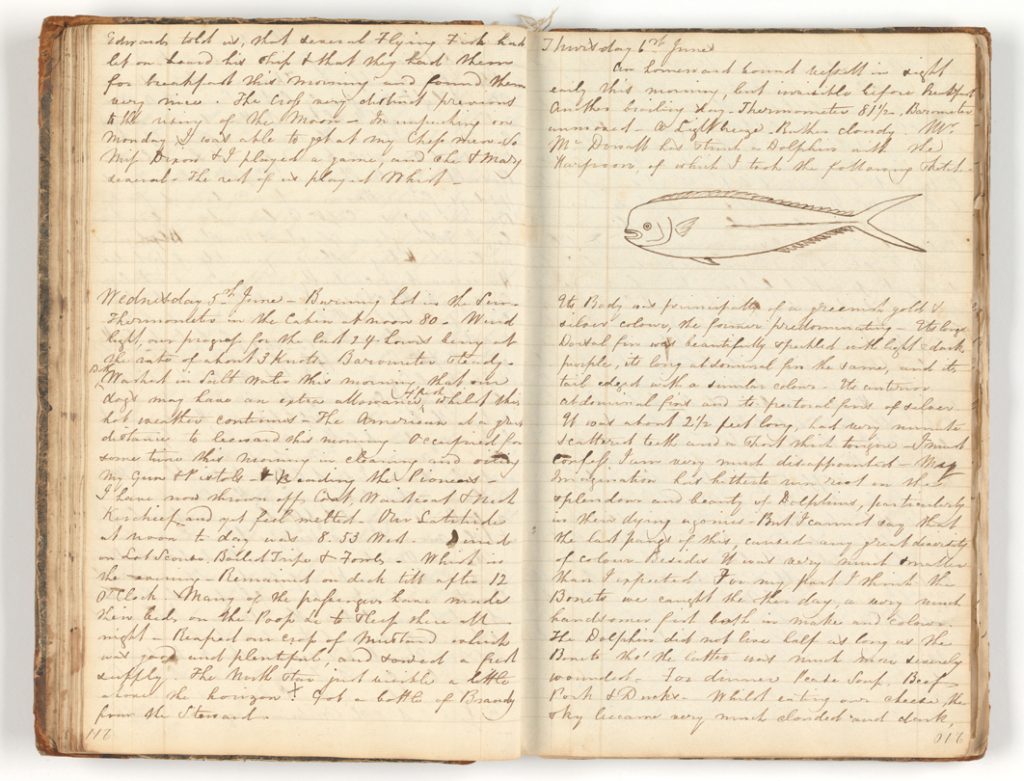 Edwards told us, that several Flying Fish had
let on board his Ship & that they had them
for breakfast this morning and found them
very nice. The Cross very distinct previous
to the rising of the Moon - In unpacking on
Monday I was able to get at my Chess men. So
Miss Dixon & I played a game, and she & Mary
several. The rest of us played Whist -
Wednesday 5th June - Burning hot in the Sun.
Thermometer in the Cabin at noon 80 - Wind
light, our progress for the last 24 hours being at
the rate of about 3 Knots. Barometer steady -
Washed in Salt Water this morning that our
dogs may have an extra allowance whilst this
hot weather continues - The American at a great
distance to leeward this morning Occupied for
some time this morning in cleaning and oiling
my Gun & Pistols & reading the Pioneers -
I have now thrown off Coat Waistcoat & Neck
Kerchief and yet feel melted - Our Latitude
at noon to day was 8.53 Dined
on Lot Scouse, Boiled Tripe & Fowls - Whist in
the evening - Remained on deck till after 12
O'Clock Many of the passengers have made
their beds on the Poop as to Sleep there all
night - Reaped our crop of Mustard which
was good and plentiful, and sowed a fresh
supply. The North Star just visible a little
above the horizon Got a bottle of Brandy
from the Steward -
116
Thursday 6th June
An homeward bound vessell in sight
early this morning, but invisible before breakfast
Another broiling day - Thermometer 81 1/2, Barometer
unmoved - A Light breeze Rather cloudy. Mr
Mc Dowall has struck a Dolphin with the
Harpoon, of which I took the following sketch -
Its Body is principally of a greenish gold &
silver colour, the former predominating - Its long
Dorsal fin was beautifully speckled with light & dark
purple, its long abdominal fin the same, and its
tail edged with a similar colour - Its anterior
abdominal fins and its pectoral fins of silver
It was about 2 1/2 feet long, had very minute
scattered teeth and a short thick tongue - I must
confess I am very much disappointed - My
Imagination has hitherto run riot in the
splendour and beauty of Dolphins, particularly
in their dying agonies - But I cannot say that
the last pangs of this, caused any great diversity
of colour Besides It was very much smaller
than I expected For my part I think the
Bonito we caught the other day, a very much
handsomer fish both in make and colour.
The Dolphin did not live half as long as the
Bonito tho' the latter was much more severely
wounded - For dinner Pease Soup, Beef
Pork & Ducks - Whilst eating our cheese, the
sky became very much clouded and dark,